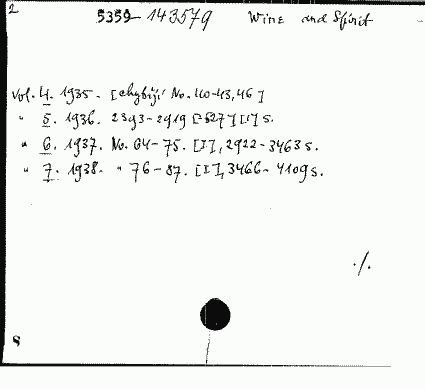 2
5359-143579 Wine and Spirit
Vol. 4. 1935. [chybějí No. 40-43, 46]
" 5. 1936. 2393-2919 [=527] [1] s.
" 6. 1937. No. 64-75. [I], 2922-3463 s.
" 7. 1938. " 76-87. [I], 3466-4109 s.
./.
S